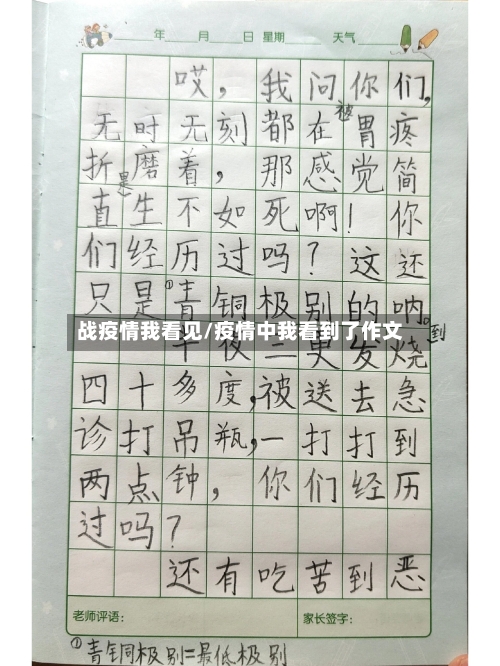 年 月 日 星期 天气
哎，我问你们，
无时无刻都在被胃疼
折磨着，那感觉简
直是生不如死啊！你
们经历过吗？这还
只是①青铜极别的呐。
战疫情我看见/疫情中我看到了作文
半夜三更发烧到
四十多度，被送去急
诊打吊瓶，一打打到
两点钟，你们经历
过吗？
还有吃苦到恶
老师评语： 家长签字：
①青铜极别=最低极别